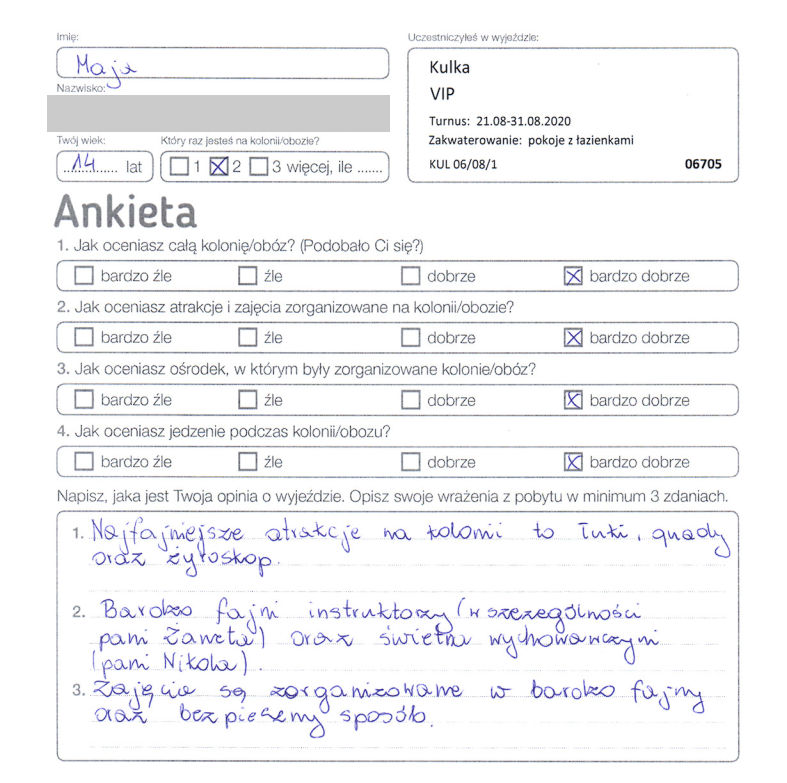 Imię:
Maja
Nazwisko:
Twój wiek:
14 lat
Który raz jesteś na kolonii/obozie?
1 2 3 więcej, ile .......
Uczestniczyłeś w wyjeździe:
Kulka
VIP
Turnus: 21.08-31.08.2020
Zakwaterowanie: pokoje z łazienkami
KUL 06/08/1 06705
Ankieta
1. Jak oceniasz całą kolonię/obóz? (Podobało Ci się?)
bardzo źle źle dobrze bardzo dobrze
2. Jak oceniasz atrakcje i zajęcia zorganizowane na kolonii/obozie?
bardzo źle źle dobrze bardzo dobrze
3. Jak oceniasz ośrodek, w którym były zorganizowane kolonie/obóz?
bardzo źle źle dobrze bardzo dobrze
4. Jak oceniasz jedzenie podczas kolonii/obozu?
bardzo źle źle dobrze bardzo dobrze
Napisz, jaka jest Twoja opinia o wyjeździe. Opisz swoje wrażenia z pobytu w minimum 3 zdaniach.
1. Najfajniejsze atrakcje na kolonii to łuki, quady
oraz żyroskop.
2. Bardzo fajni instruktorzy (w szczególności
pani Żaneta) oraz świetna wychowawczyni
(pani Nikola).
3. Zajęcia są zorganizowane w bardzo fajny
oraz bezpieczny sposób.